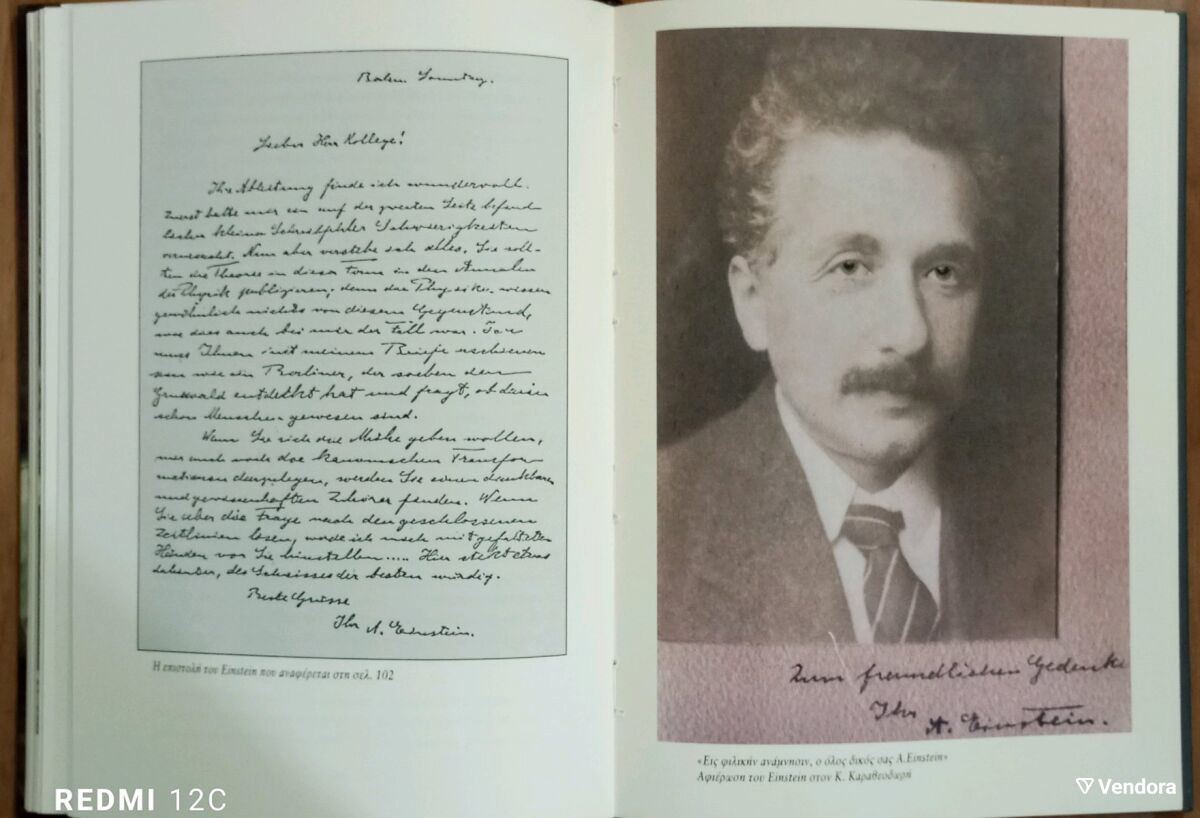 Berlin. Sonntag.
Lieber Herr Kollege!
Ihre Ableitung finde ich wundervoll.
Zuerst hatte mir ein auf der zweiten Seite befind-
licher kleiner Schreibfehler Schwierigkeiten
verursacht. Nun aber verstehe ich alles. Sie soll-
ten die Theorie in dieser Form in den Annalen
der Physik publizieren; denn die Physiker wissen
gewöhnlich nichts von diesem Gegenstand,
wie dies auch bei mir der Fall war. Ich
muss Ihnen mit meinem Briefe erschienen
sein wie ein Berliner, der soeben den
Grunewald entdeckt hat und fragt, ob darin
schon Menschen gewesen sind.
Wenn Sie sich die Mühe geben wollen,
mir auch noch die kanonischen Transfor-
mationen darzulegen, werden Sie einen dankbaren
und gewissenhaften Zuhörer finden. Wenn
Sie aber die Frage nach den geschlossenen
Zeitlinien lösen, werde ich mich mit gefalteten
Händen vor Sie hinstellen..... Hier steckt etwas
dahinter, des Schweisses der besten würdig.
Beste Grüsse
Ihr A. Einstein.
Η επιστολή του Einstein που αναφέρεται στη σελ. 102
Zum freundlichen Gedenke
Ihr
A. Einstein.
«Εις φιλικήν ανάμνησιν, ο όλος δικός σας A.Einstein»
Αφιέρωση του Einstein στον Κ. Καραθεοδωρή
REDMI 12C
Vendora